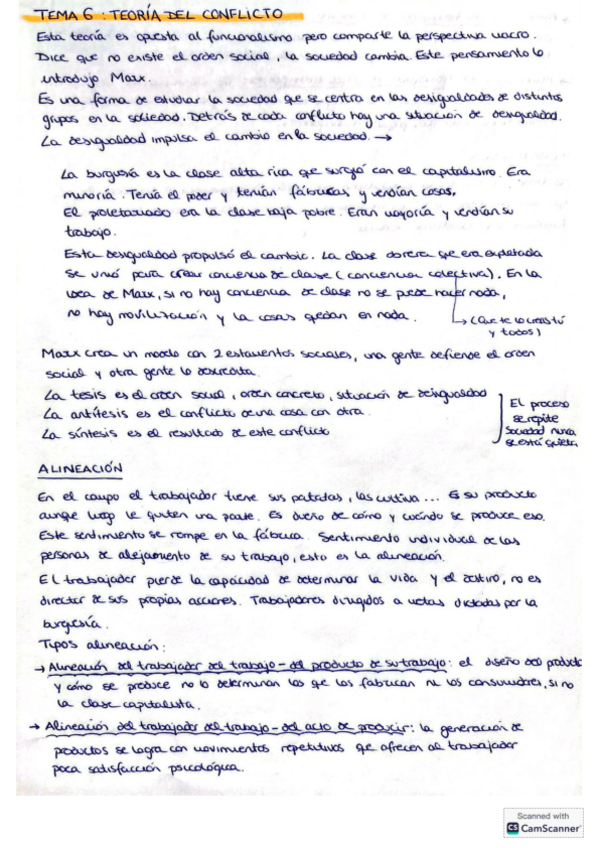 TEMA 6: TEORÍA DEL CONFLICTO
Esta teoría es opuesta al funcionalismo pero comparte la perspectiva macro.
Dice que no existe el orden social, la sociedad cambia. Este pensamiento lo
introdujo Marx.
Es una forma de estudiar la sociedad que se centra en las desigualdades de distintos
grupos en la sociedad. Detrás de cada conflicto hay una situación de desigualdad.
La desigualdad impulsa el cambio en la sociedad. →
La burguesía es la clase alta rica que surgió con el capitalismo. Era
minoría. Tenía el poder y tenían fábricas y vendían cosas.
El proletariado era la clase baja pobre. Eran mayoría y vendían su
trabajo.
Esta desigualdad propulsó el cambio. La clase obrera que era explotada
se unió para crear conciencia de clase (conciencia colectiva). En la
idea de Marx, si no hay conciencia de clase no se puede hacer nada,
no hay movilización y la cosas quedan en nada.
↳ (Que te lo creas tú
y todos)
Marx crea un modelo con 2 estamentos sociales, una gente defiende el orden
social y otra gente lo desacredita.
La tesis es el orden social, orden concreto, situación de desigualdad
La antítesis es el conflicto de una cosa con otra.
La síntesis es el resultado de este conflicto
El proceso
se repite
sociedad nunca
se está quieta
ALINEACIÓN
En el campo el trabajador tiene sus patatas, las cultiva... Es su producto
aunque luego le quiten una parte. Es dueño de cómo y cuándo se produce eso.
Este sentimiento se rompe en la fábrica. Sentimiento individual de las
personas de alejamiento de su trabajo, esto es la alineación.
El trabajador pierde la capacidad de determinar la vida y el destino, no es
director de sus propias acciones. Trabajadores dirigidos a metas dictadas por la
burgesía.
Tipos alineación:
→ Alineación del trabajador del trabajo - del producto de su trabajo: el diseño del producto
y cómo se produce no lo determinan los que los fabrican ni los consumidores, si no
la clase capitalista.
→ Alineación del trabajador del trabajo - del acto de producir: la generación de
productos se logra con movimientos repetitivos que ofrecen al trabajador
poca satisfacción psicológica.
Scanned with
CS CamScanner